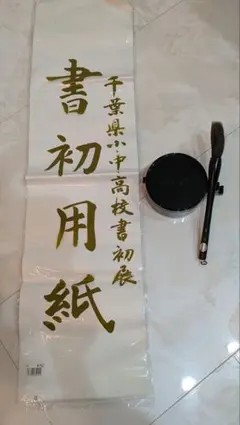 千葉県小中高校書初展
書初用紙